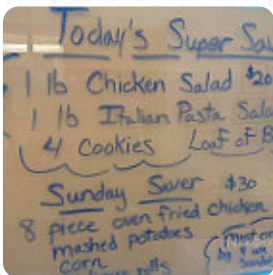 Today's Super Sav
1 lb Chicken Salad $20
1 lb Italian Pasta Sala
4 Cookies Loaf of B
Sunday Saver $30
8 piece oven fried chicken
mashed potatoes
corn
rolls